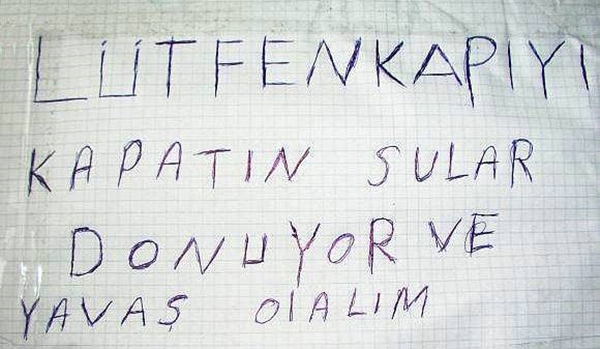 LÜTFENKAPIYI
KAPATIN SULAR
DONUYOR VE
YAVAŞ OlALIM